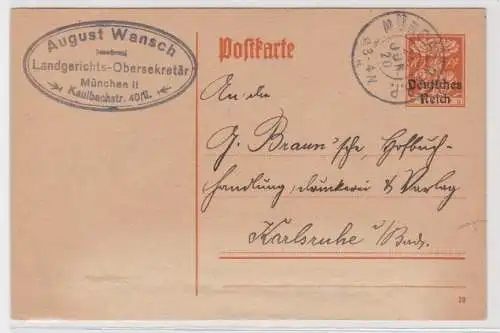 August Wansch
Landgerichts-Obersekretär
München II
Kaulbachstr. 40/II.
Postkarte
MÜNCHEN
JUN
20
3-4 N
Deutsches
Reich
An die
G. Braun'sche, Hofbuch-
handlung, druckerei & Verlag
Karlsruhe i/Bad.